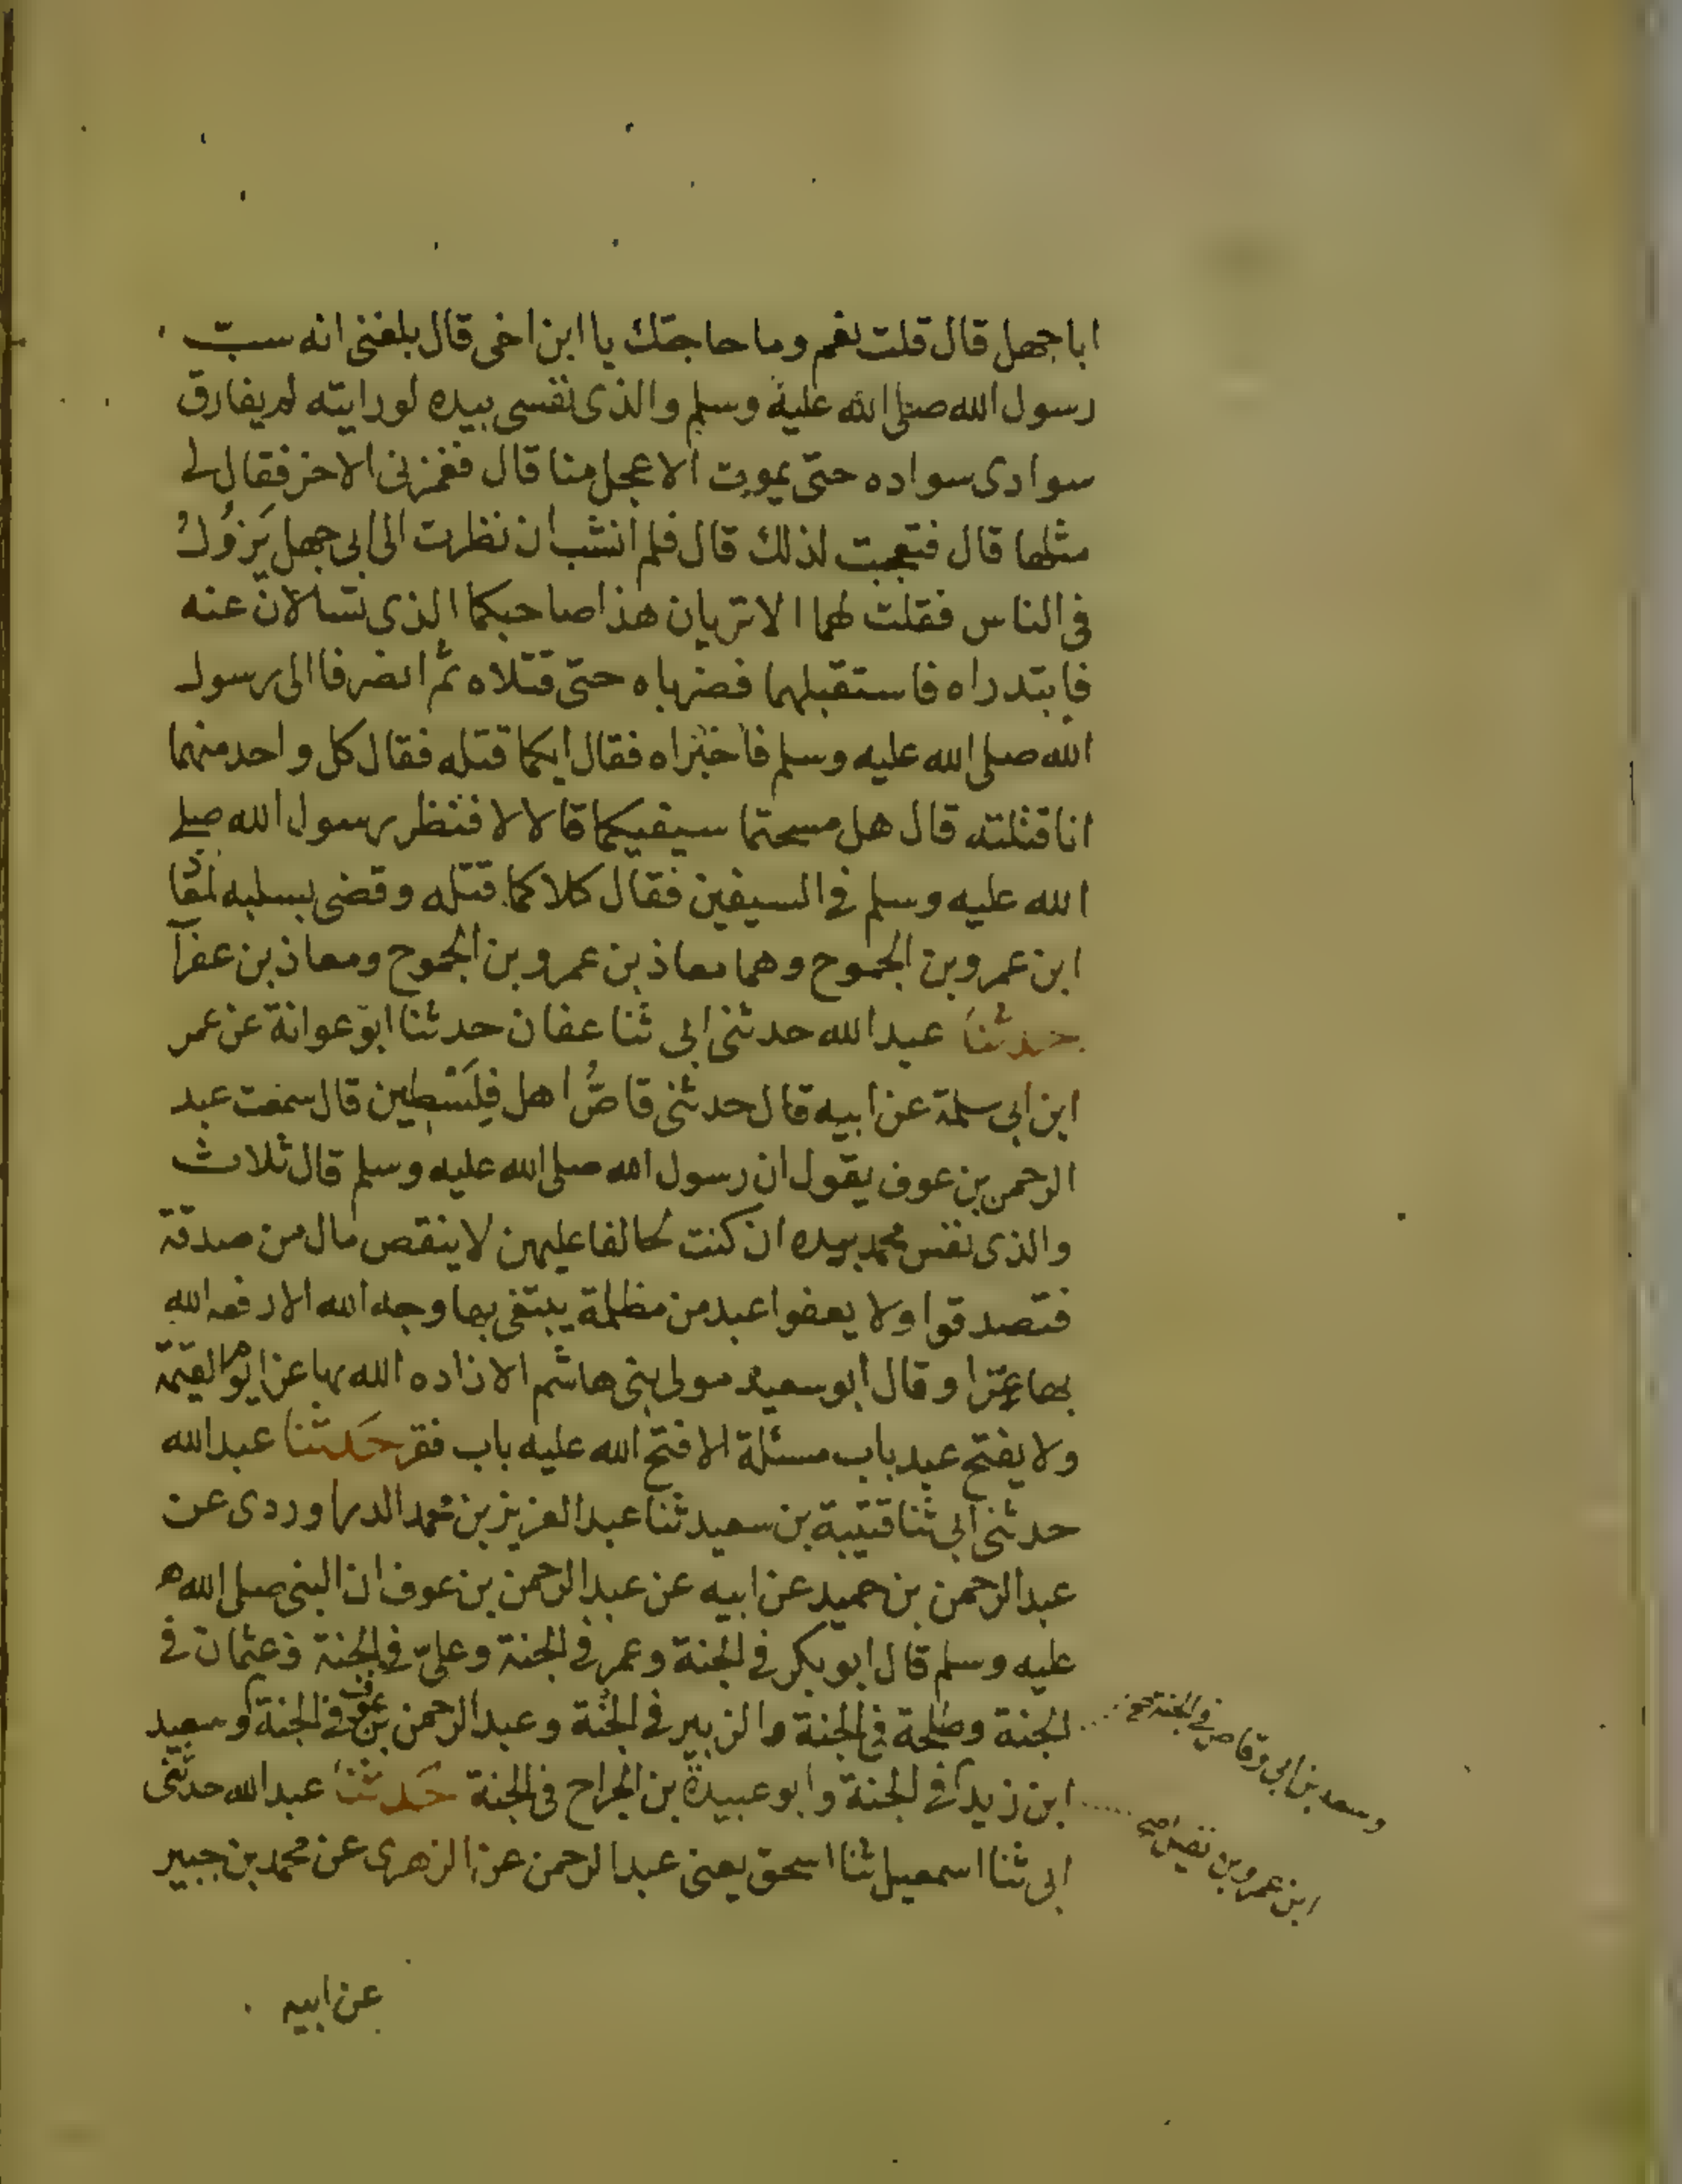 اباجهل قال قلت نعم وما حاجتك يا ابن اخى قال بلغنى انه سبّ
رسول الله صلى الله عليه وسلم والذى نفسى بيده لو رايته لم يفارق
سوادى سواده حتى يموت الاعجل منا قال فغمزنى الاخر فقال لى
مثلها قال فتعجبت لذلك قال فلم انشب ان نظرت الى ابى جهل يَزُولُ
فى الناس فقلت لهما الا تريان هذا صاحبكما الذى تسالان عنه
فابتدراه فاستقبلهما فضرباه حتى قتلاه ثم انصرفا الى رسول
الله صلى الله عليه وسلم فاخبراه فقال ايكما قتله فقال كل واحد منهما
انا قتلته قال هل مسحتما سيفيكما قالا لا فنظر رسول الله صلى
الله عليه وسلم فى السيفين فقال كلاكما قتله وقضى بسلبه لمعاذ
ابن عمرو بن الجموح وهما معاذ بن عمرو بن الجموح ومعاذ بن عفرآ
حدثنا عبد الله حدثنى ابى ثنا عفان حدثنا ابو عوانة عن عمر
ابن ابى سلمة عن ابيه قال حدثنى قاصُّ اهل فِلَسْطِين قال سمعت عبد
الرحمن بن عوف يقول ان رسول الله صلى الله عليه وسلم قال ثلاث
والذى نفس محمد بيده ان كنت لحالفا عليهن لا ينقص مال من صدقة
فتصدقوا ولا يعفوا عبد من مظلمة يبتغى بها وجه الله الا رفعه الله
بها عزا وقال ابو سعيد مولى بنى هاشم الا زاده الله بها عزا يوم القيمة
ولا يفتح عبد باب مسئلة الا فتح الله عليه باب فقر حدثنا عبد الله
حدثنى ابى ثنا قتيبة بن سعيد ثنا عبد العزيز بن محمد الدراوردى عن
عبد الرحمن بن حميد عن ابيه عن عبد الرحمن بن عوف ان النبى صلى الله
عليه وسلم قال ابو بكر فى الجنة وعمر فى الجنة وعلىّ فى الجنة وعثمان فى
الجنة وطلحة فى الجنة والزبير فى الجنة وعبد الرحمن بن عوف فى الجنة وسعيد
وسعد بن ابى وقاص فى الجنة صح
ابن زيد فى الجنة وابو عبيدة بن الجراح فى الجنة حدثنا عبد الله حدثنى
ابن عمرو بن نفيل صح
ابى ثنا اسمعيل ثنا اسحق يعنى عبد الرحمن عن الزهرى عن محمد بن جبير
عن ابيه